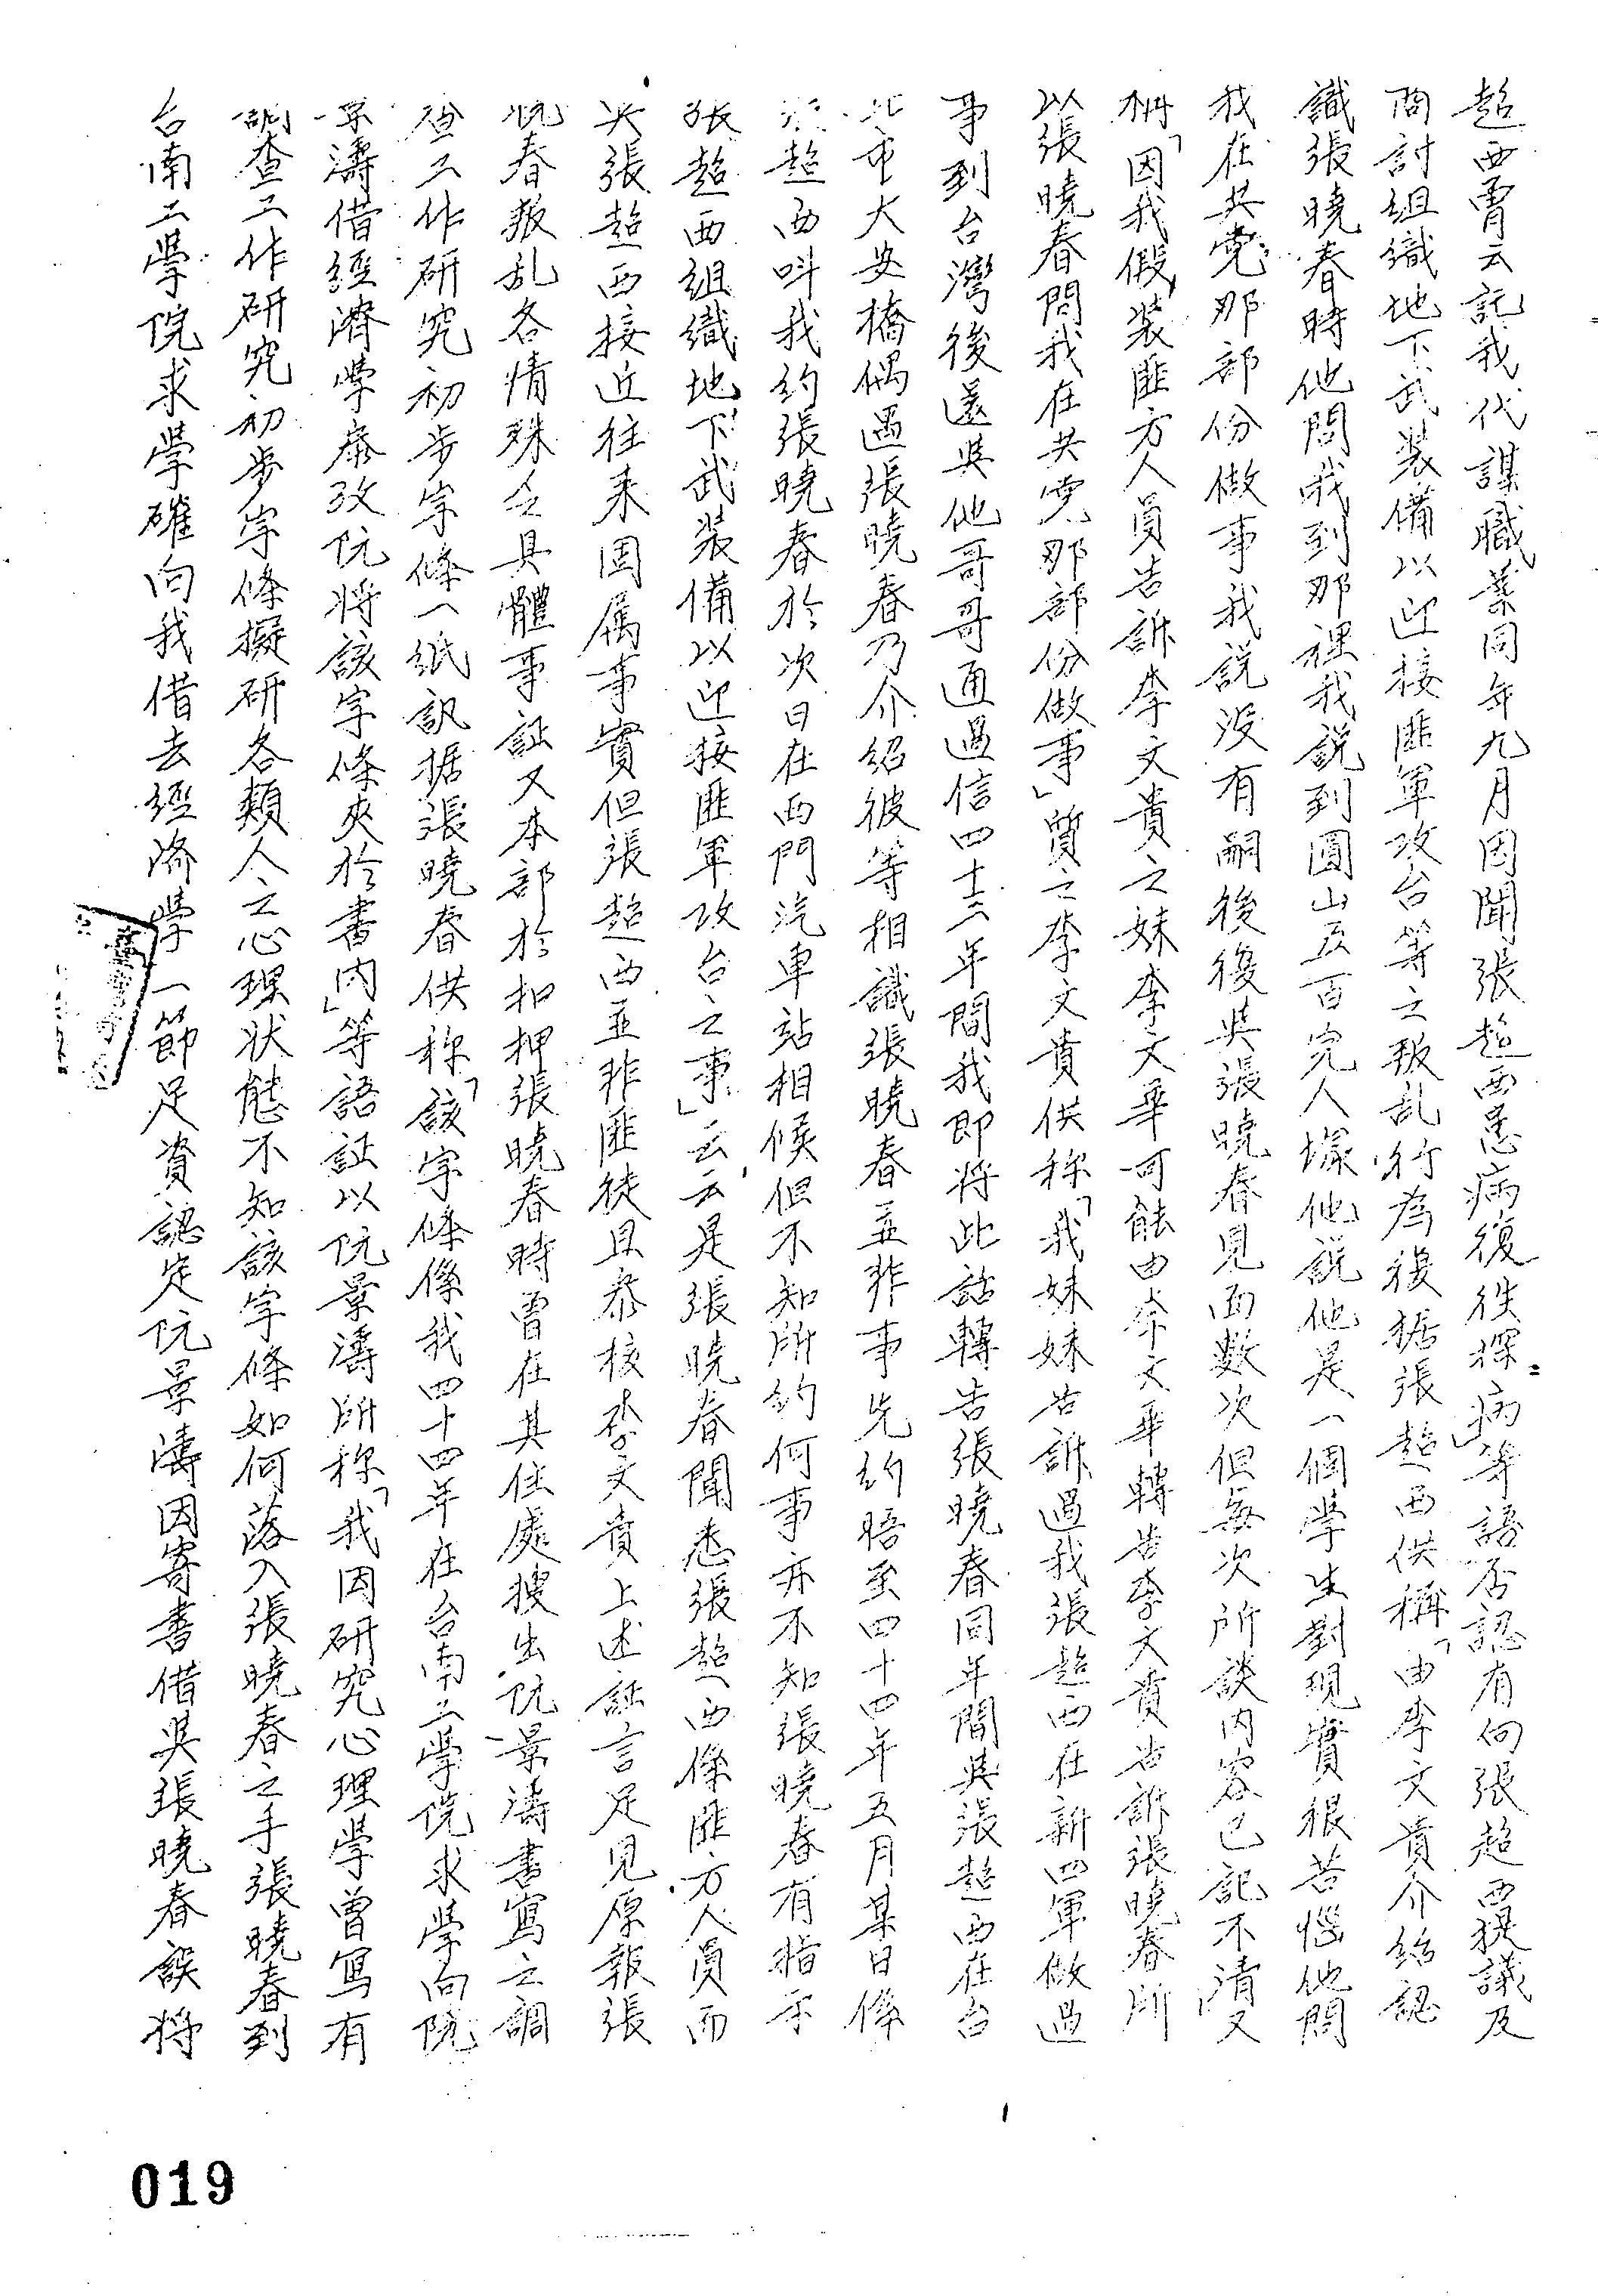 超西胃云託我代謀職業同年九月因聞張超西患病復往探病」等語否認有向張超西提議及
商討組織地下武裝備以迎接匪軍攻台等之叛乱行為復据張超西供稱「由李文貴介紹認
識張曉春時他問我到那裡我說到圓山五百完人塚他說他是一個學生對現實很苦惱他問
我在共党那部份做事我說没有嗣後復與張曉春見面數次但每次所談内容已記不清又
稱「因我假裝匪方人員告訴李文貴之妹李文華可能由李文華轉告李文貴告訴張曉春所
以張曉春問我在共党那部份做事」質之李文貴供称「我妹妹告訴過我張超西在新四軍做過
事到台灣後還與他哥哥通過信四十三年間我即将此話轉告張曉春同年間與張超西在台
北市大安橋偶遇張曉春乃介紹彼等相識張曉春並非事先約晤至四十四年五月某日係
張超西呌我約張曉春於次日在西門汽車站相候但不知所約何事亦不知張曉春有指示
張超西組織地下武装備以迎接匪軍攻台之事」云云是張曉春聞悉張超西係匪方人員而
與張超西接近往来固属事實但張超西並非匪徒且叅核李文貴上述証言足見原報張
曉春叛乱各情殊乏具體事証又本部於扣押張曉春時曾在其住處搜出阮景濤書寫之調
查工作研究初步字條一紙訊据張曉春供称「該字條係我四十四年在台南工學院求學向阮
景濤借經濟學叅攷阮将該字條夾於書内」等語証以阮景濤所称「我因研究心理學曾寫有
調查工作研究初步字條擬研各類人之心理状態不知該字條如何落入張曉春之手張曉春到
台南工學院求學確向我借去經濟學一節足資認定阮景濤因寄書借與張曉春誤将
019